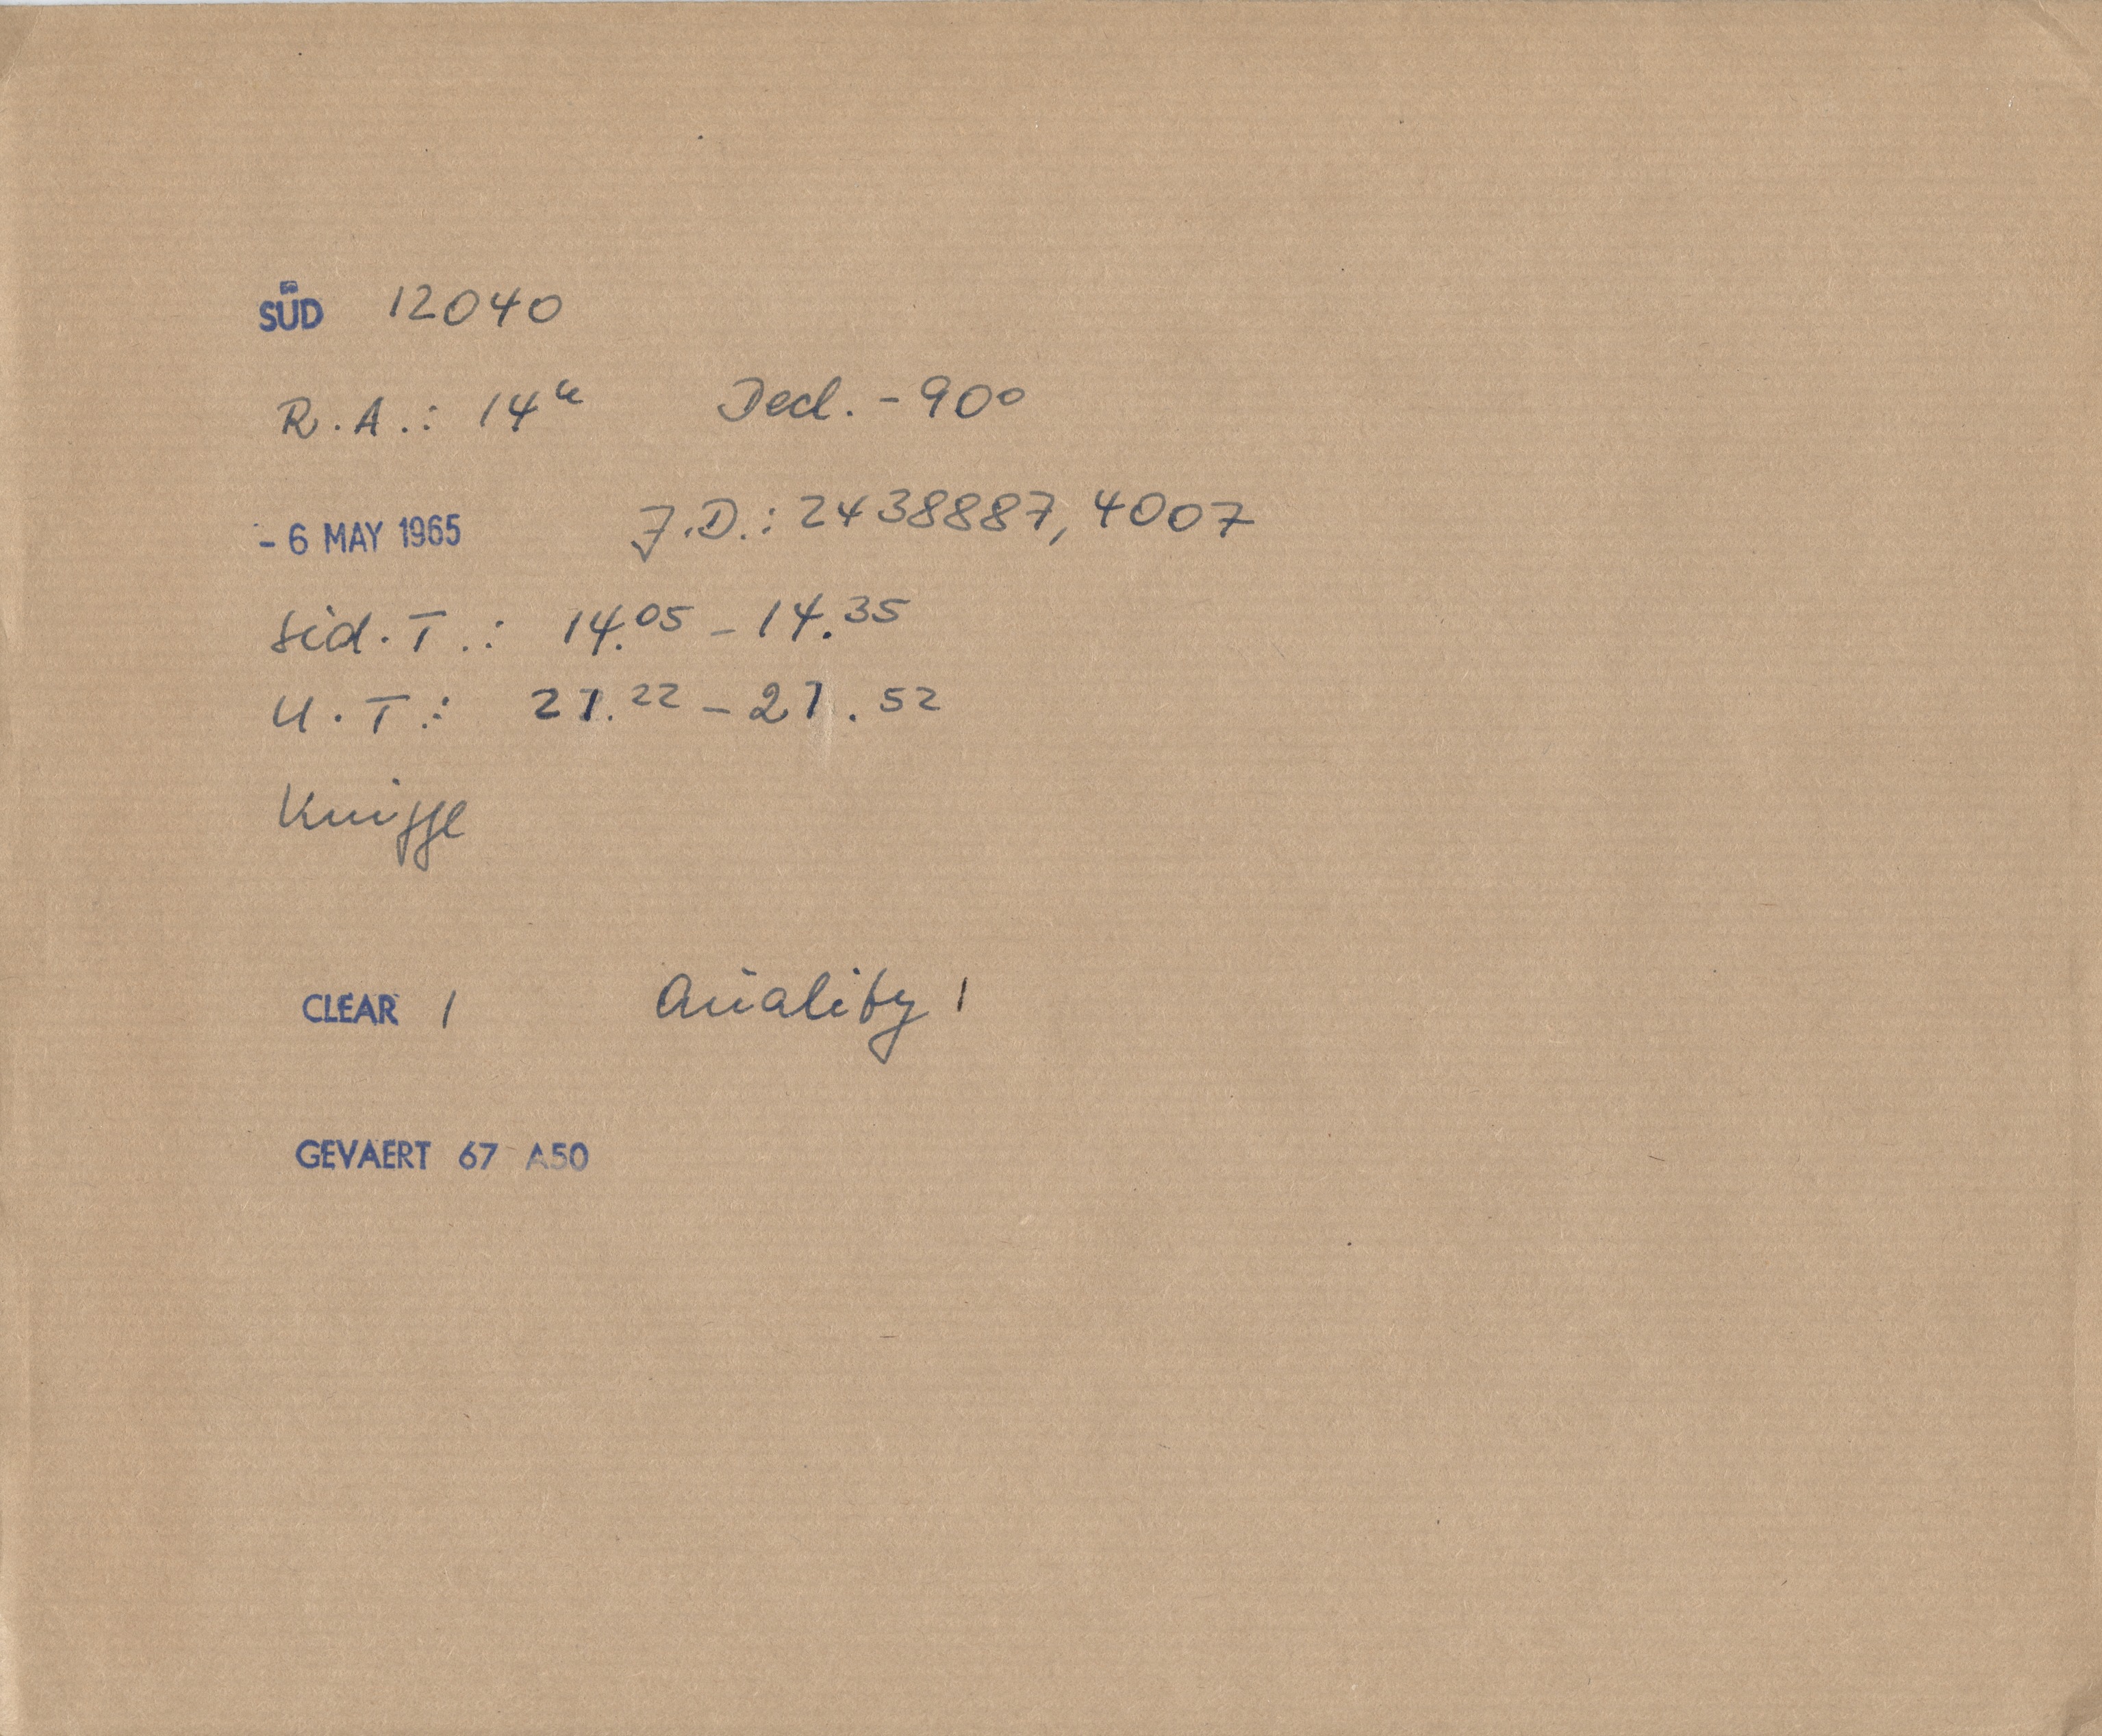 SÜD 12040
R.A.: 14ʰ Decl. -90°
- 6 MAY 1965 J.D.: 2438887,4007
Sid.T.: 14.05 - 14.35
U.T.: 21.22 - 21.52
Knigge
CLEAR 1 Quality 1
GEVAERT 67 A50